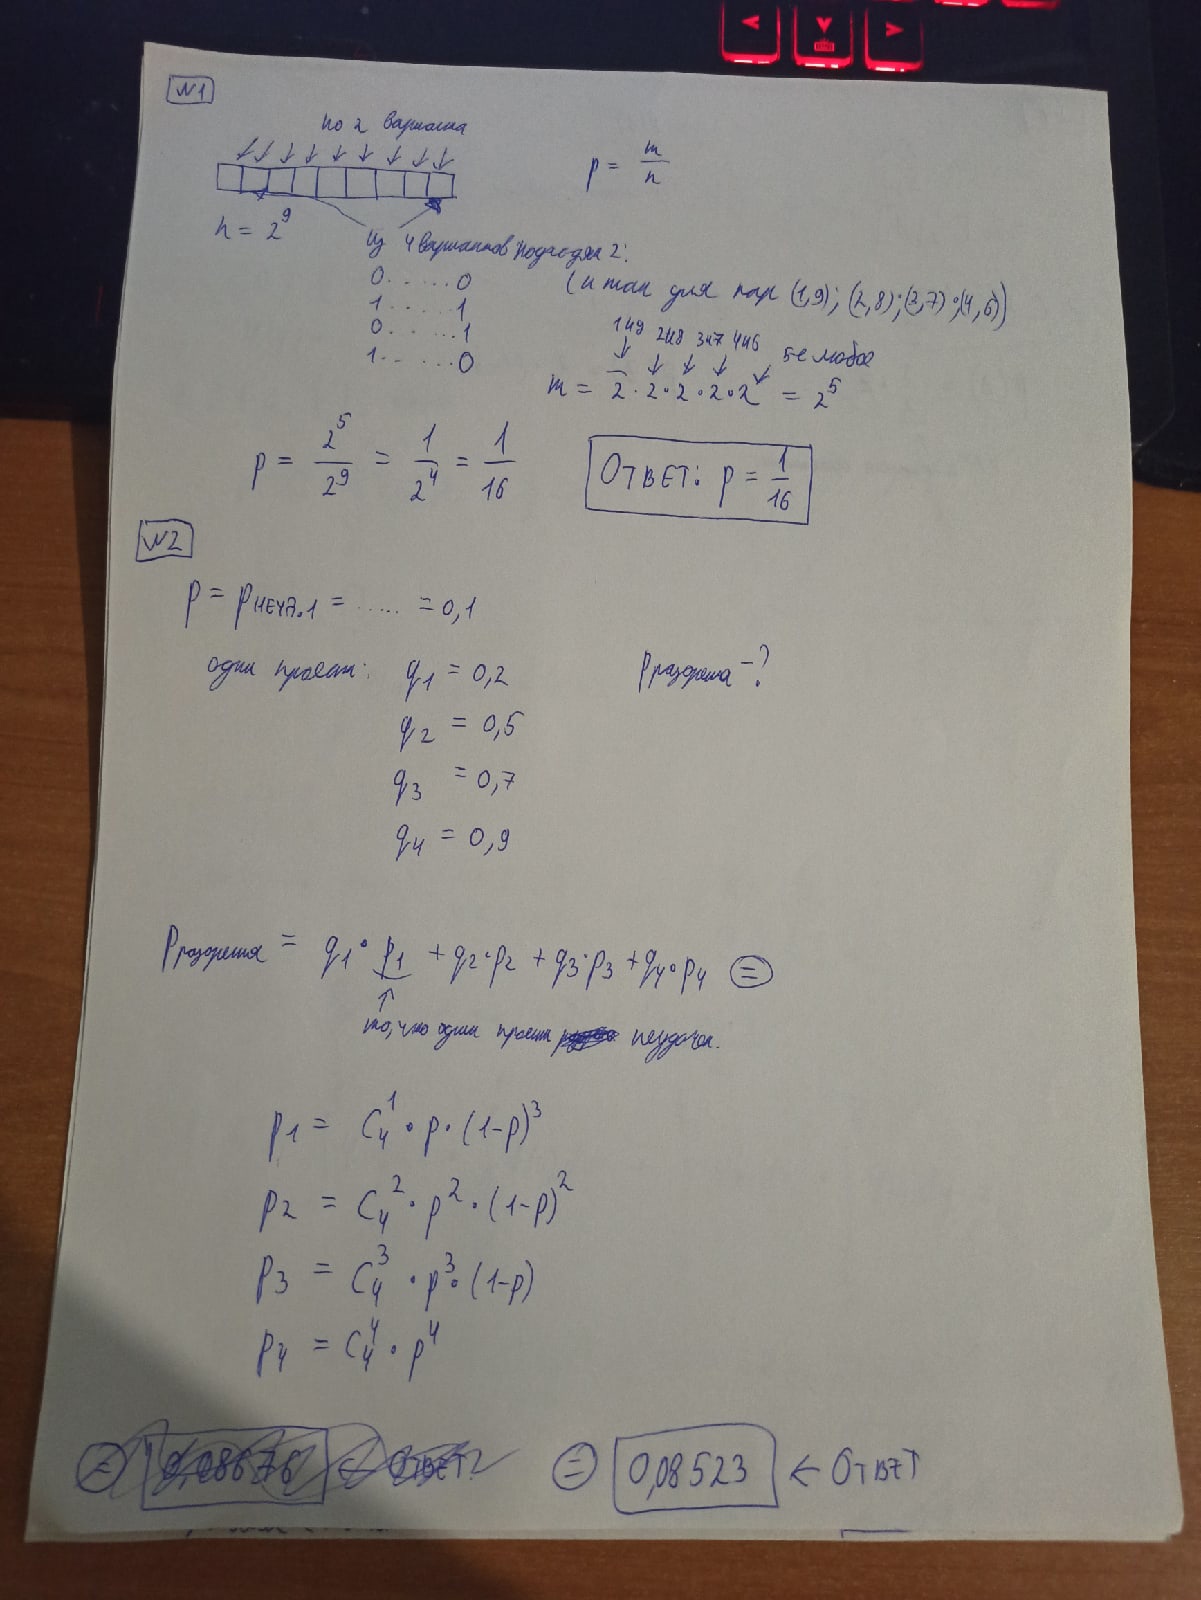 №1
по 2 варианта
p = m/n
n = 2^9
из 4 вариантов подходят 2:
0......0
1......1
0......1
1......0
(и так для пар (1,9); (2,8); (3,7); (4,6))
1и9 2и8 3и7 4и6 5-е любое
m = 2·2·2·2·2 = 2^5
p = 2^5/2^9 = 1/2^4 = 1/16
ОТВЕТ: p = 1/16
№2
p = pнеуд.1 = ..... = 0,1
один проект: q1 = 0,2
pразорения -?
q2 = 0,5
q3 = 0,7
q4 = 0,9
pразорения = q1·p1 + q2·p2 + q3·p3 + q4·p4 =
то, что один проект неудачен.
p1 = C_4^1 · p · (1-p)^3
p2 = C_4^2 · p^2 · (1-p)^2
p3 = C_4^3 · p^3 · (1-p)
p4 = C_4^4 · p^4
= 0,08523 ← ОТВЕТ